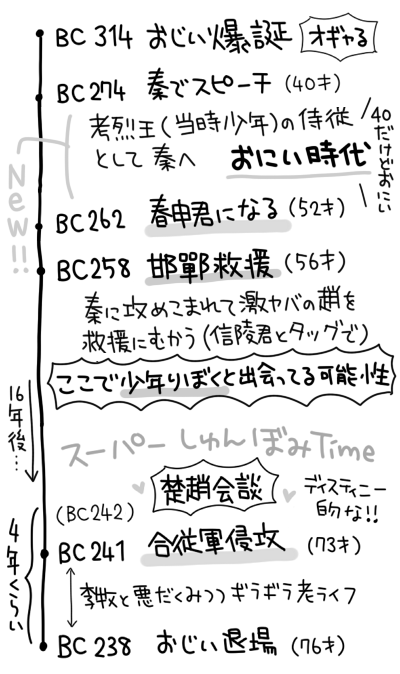 BC 314 おじい爆誕 オギャる
BC274 秦でスピーチ (40才)
考烈王(当時少年)の侍従
として 秦へ おにい時代
40だけどおにい
New!!
BC262 春申君になる (52才)
BC258 邯鄲救援 (56才)
秦に攻めこまれて激ヤバの趙を
救援にむかう(信陵君とタッグで)
ここで少年りぼくと出会ってる可能性
16年後…
スーパーしゅんぼみTime
楚趙会談
ディスティニー
的な!!
(BC242)
BC241 合従軍侵攻 (73才)
4年くらい
李牧と悪だくみつつギラギラ老ライフ
BC238 おじい退場 (76才)